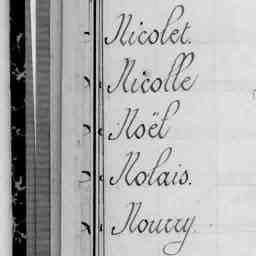 Nicolet.
Nicolle
Noël
Nolais.
Nourry